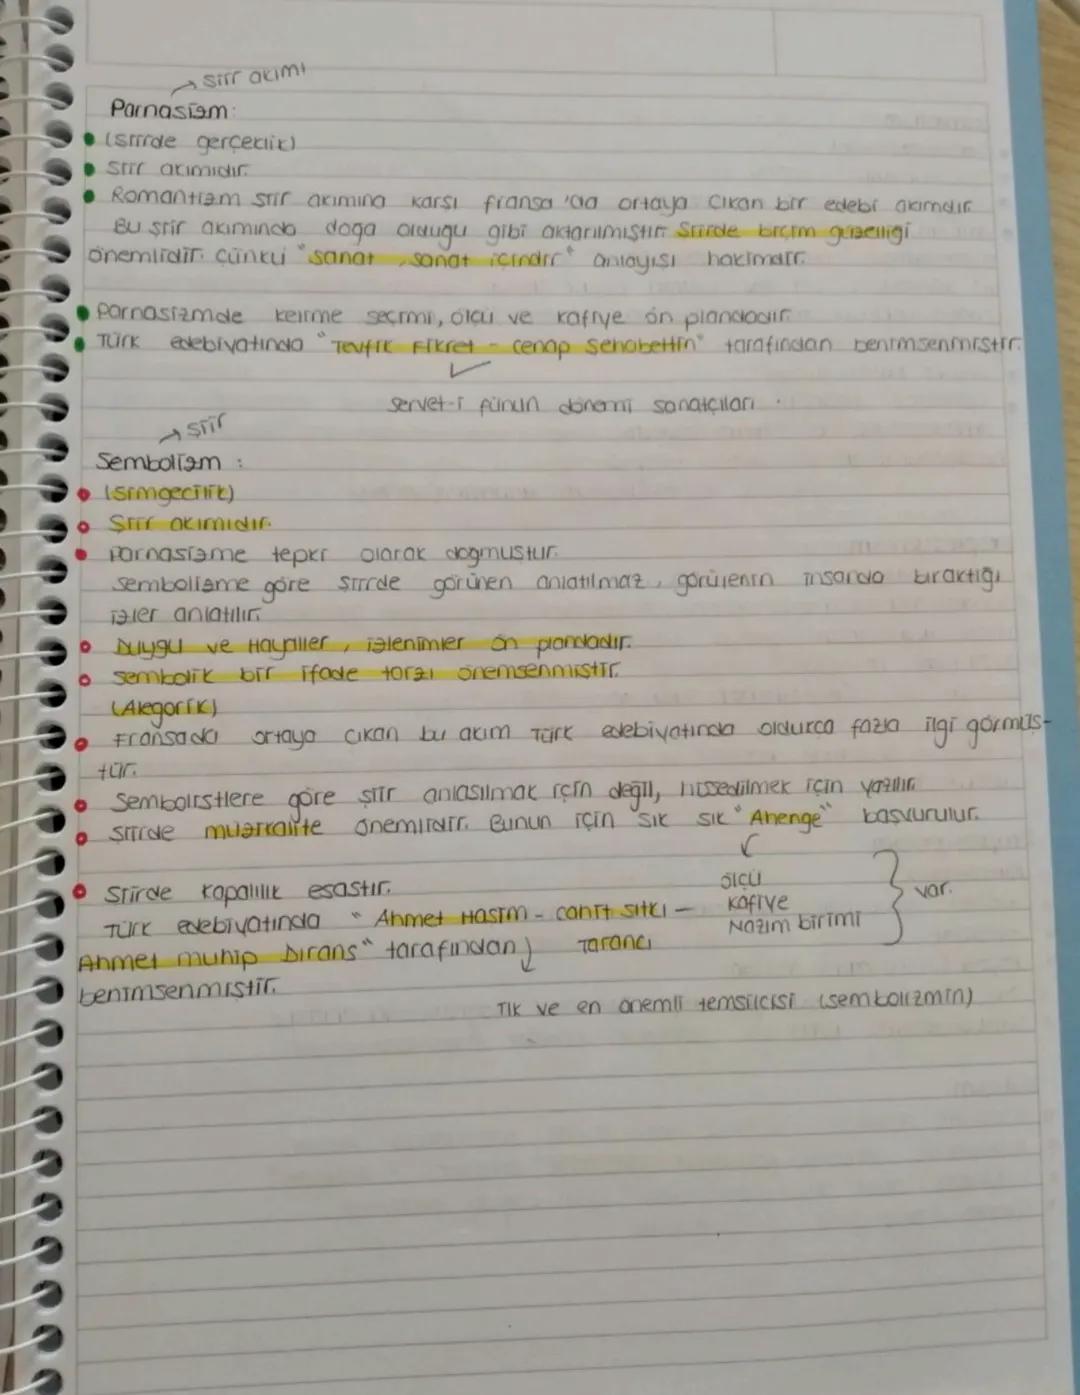 → şiir akımı
Parnasizm:
(Şiirde gerçeklik)
Şiir akımıdır.
Romantizm şiir akımına karşı fransa'da ortaya çıkan bir edebi akımdır.
Bu şiir akımında doğa olduğu gibi aktarılmıştır. Şiirde biçim güzelliği
önemlidir. Çünkü "sanat, sanat içindir" anlayışı hakimdir.
Parnasizmde kelime seçimi, ölçü ve kafiye ön plandadır.
Türk edebiyatında "Tevfik Fikret - Cenap Şehabettin" tarafından benimsenmiştir.
Servet-i fünun dönemi sanatçıları.
→ Şiir
Sembolizm :
(Simgecilik)
Şiir akımıdır.
Parnasizme tepki olarak doğmuştur.
Sembolizme göre şiirde görünen anlatılmaz, görülenin insanda bıraktığı
izler anlatılır.
Duygu ve Hayaller, izlenimler ön plandadır.
Sembolik bir ifade tarzı önemsenmiştir.
(Alegorik)
Fransada ortaya çıkan bu akım Türk edebiyatında oldukça fazla ilgi görmüş-
tür.
Sembolistlere göre şiir anlaşılmak için değil, hissedilmek için yazılır.
Şiirde müzikalite önemlidir. Bunun için sık sık "Ahenge" başvurulur.
Ölçü
Kafiye
Nazım birimi
var.
Şiirde kapalılık esastır.
Türk edebiyatında "Ahmet Haşim - Cahit Sıtkı -
Tarancı
Ahmet muhip Dırans" tarafından
benimsenmiştir.
İlk ve en önemli temsilcisi (sembolizmin)